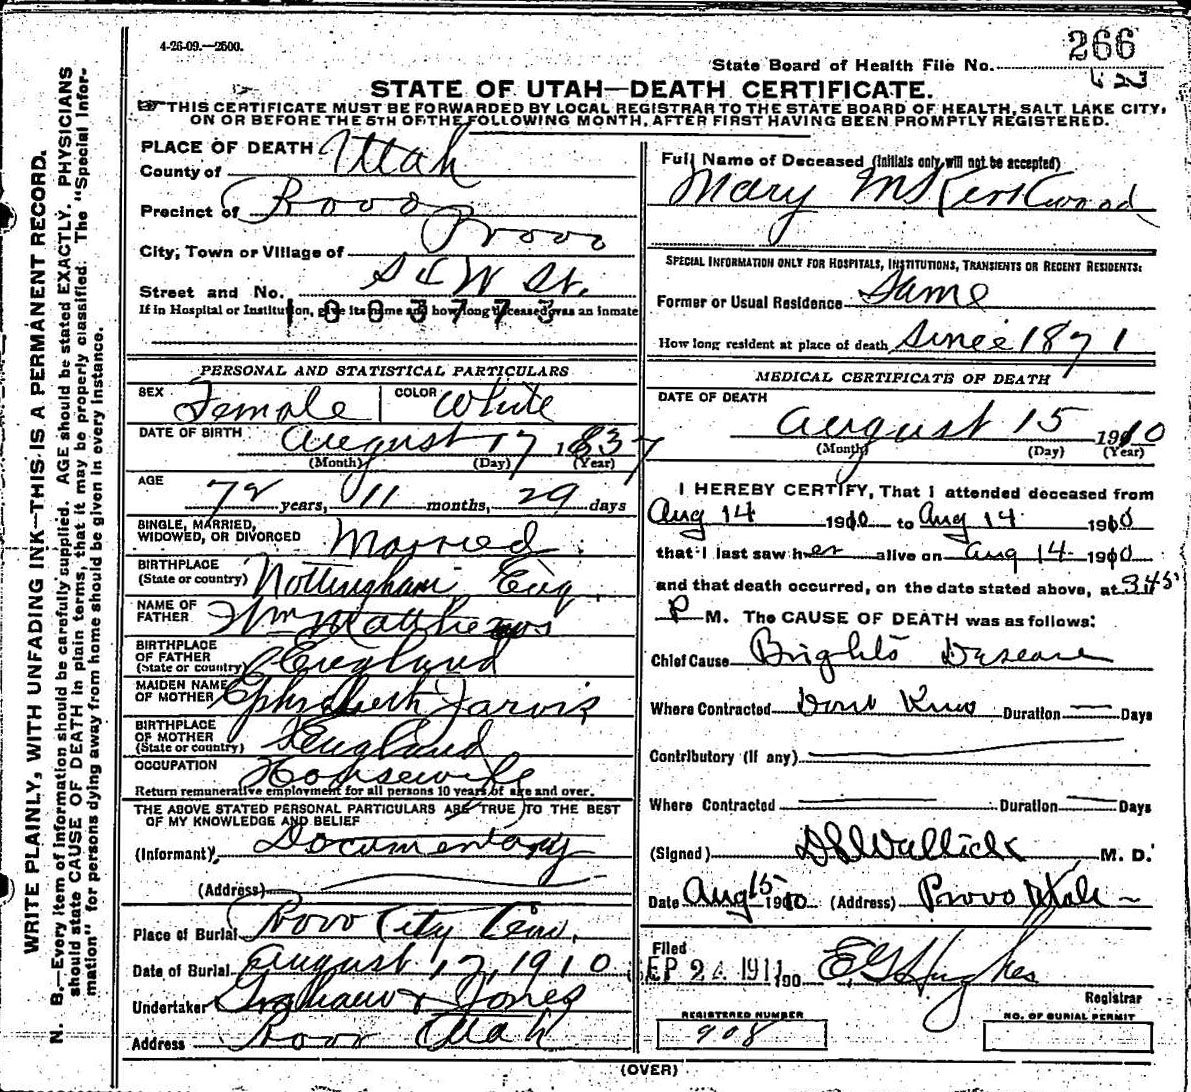 4-26-09.—2500.
266
State Board of Health File No.
STATE OF UTAH—DEATH CERTIFICATE.
THIS CERTIFICATE MUST BE FORWARDED BY LOCAL REGISTRAR TO THE STATE BOARD OF HEALTH, SALT LAKE CITY,
ON OR BEFORE THE 5TH OF THE FOLLOWING MONTH, AFTER FIRST HAVING BEEN PROMPTLY REGISTERED.
WRITE PLAINLY, WITH UNFADING INK—THIS IS A PERMANENT RECORD.
N. B.—Every item of information should be carefully supplied. AGE should be stated EXACTLY. PHYSICIANS
should state CAUSE OF DEATH in plain terms, that it may be properly classified. The "Special Infor-
mation" for persons dying away from home should be given in every instance.
PLACE OF DEATH
County of Utah
Precinct of Provo
City, Town or Village of Provo
Street and No. St.
1003773
If in Hospital or Institution, give its name and how long deceased was an inmate
PERSONAL AND STATISTICAL PARTICULARS
SEX Female COLOR White
DATE OF BIRTH August 17 1837
(Month) (Day) (Year)
AGE
72 years, 11 months, 29 days
SINGLE, MARRIED,
WIDOWED, OR DIVORCED Married
BIRTHPLACE
(State or country) Nottingham Eng
NAME OF
FATHER Wm Matthews
BIRTHPLACE
OF FATHER
(State or country) England
MAIDEN NAME
OF MOTHER Jarvis
BIRTHPLACE
OF MOTHER
(State or country) England
OCCUPATION Housewife
Return remunerative employment for all persons 10 years of age and over.
THE ABOVE STATED PERSONAL PARTICULARS ARE TRUE TO THE BEST
OF MY KNOWLEDGE AND BELIEF
(Informant) Documentary
(Address)
Place of Burial Provo City Cem.
Date of Burial August 17, 1910
Undertaker Graham & Jones
Address Provo Utah
Full Name of Deceased (Initials only will not be accepted)
Mary M Kirkwood
SPECIAL INFORMATION ONLY FOR HOSPITALS, INSTITUTIONS, TRANSIENTS OR RECENT RESIDENTS:
Former or Usual Residence Same
How long resident at place of death Since 1871
MEDICAL CERTIFICATE OF DEATH
DATE OF DEATH
August 15 1910
(Month) (Day) (Year)
I HEREBY CERTIFY, That I attended deceased from
Aug 14 1910 to Aug 14 1910
that I last saw her alive on Aug 14 1910
and that death occurred, on the date stated above, at 345
P M. The CAUSE OF DEATH was as follows:
Chief Cause Brights Disease
Where Contracted Dont Know Duration Days
Contributory (if any)
Where Contracted Duration Days
(Signed) Wallick M. D.
Date Aug 15 1910 (Address) Provo Utah
Filed
SEP 24 1911 190
Hughes
Registrar
REGISTERED NUMBER
908
NO. OF BURIAL PERMIT
(OVER)